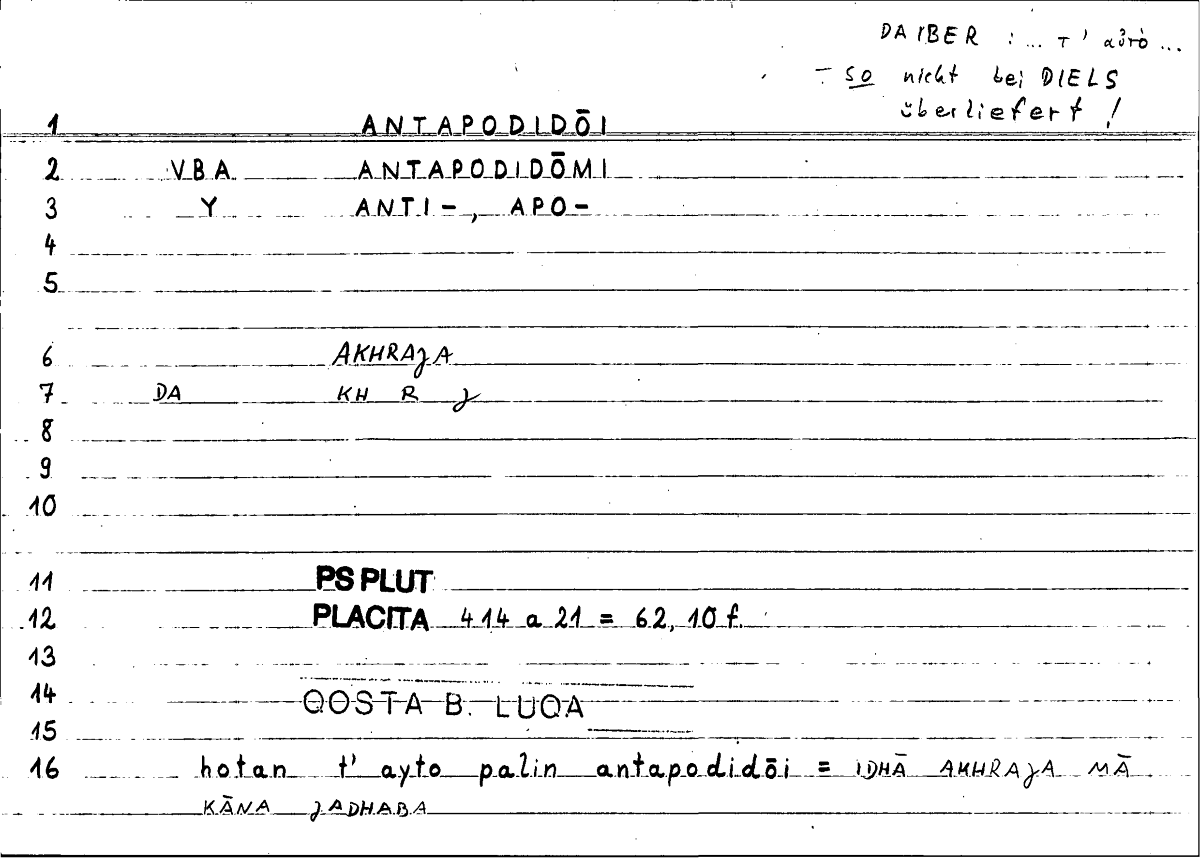 DAIBER : ... τ' αὐτὸ ...
- so nicht bei DIELS
überliefert !
1 ANTAPODIDŌI
2 VBA ANTAPODIDŌMI
3 Y ANTI-, APO-
4
5
6 AKHRAJA
7 DA KH R J
8
9
10
11 PS PLUT
12 PLACITA 414 a 21 = 62, 10 f.
13
14 QOSTA B. LUQA
15
16 hotan t' ayto palin antapodidōi = IDHĀ AKHRAJA MĀ
KĀNA JADHABA